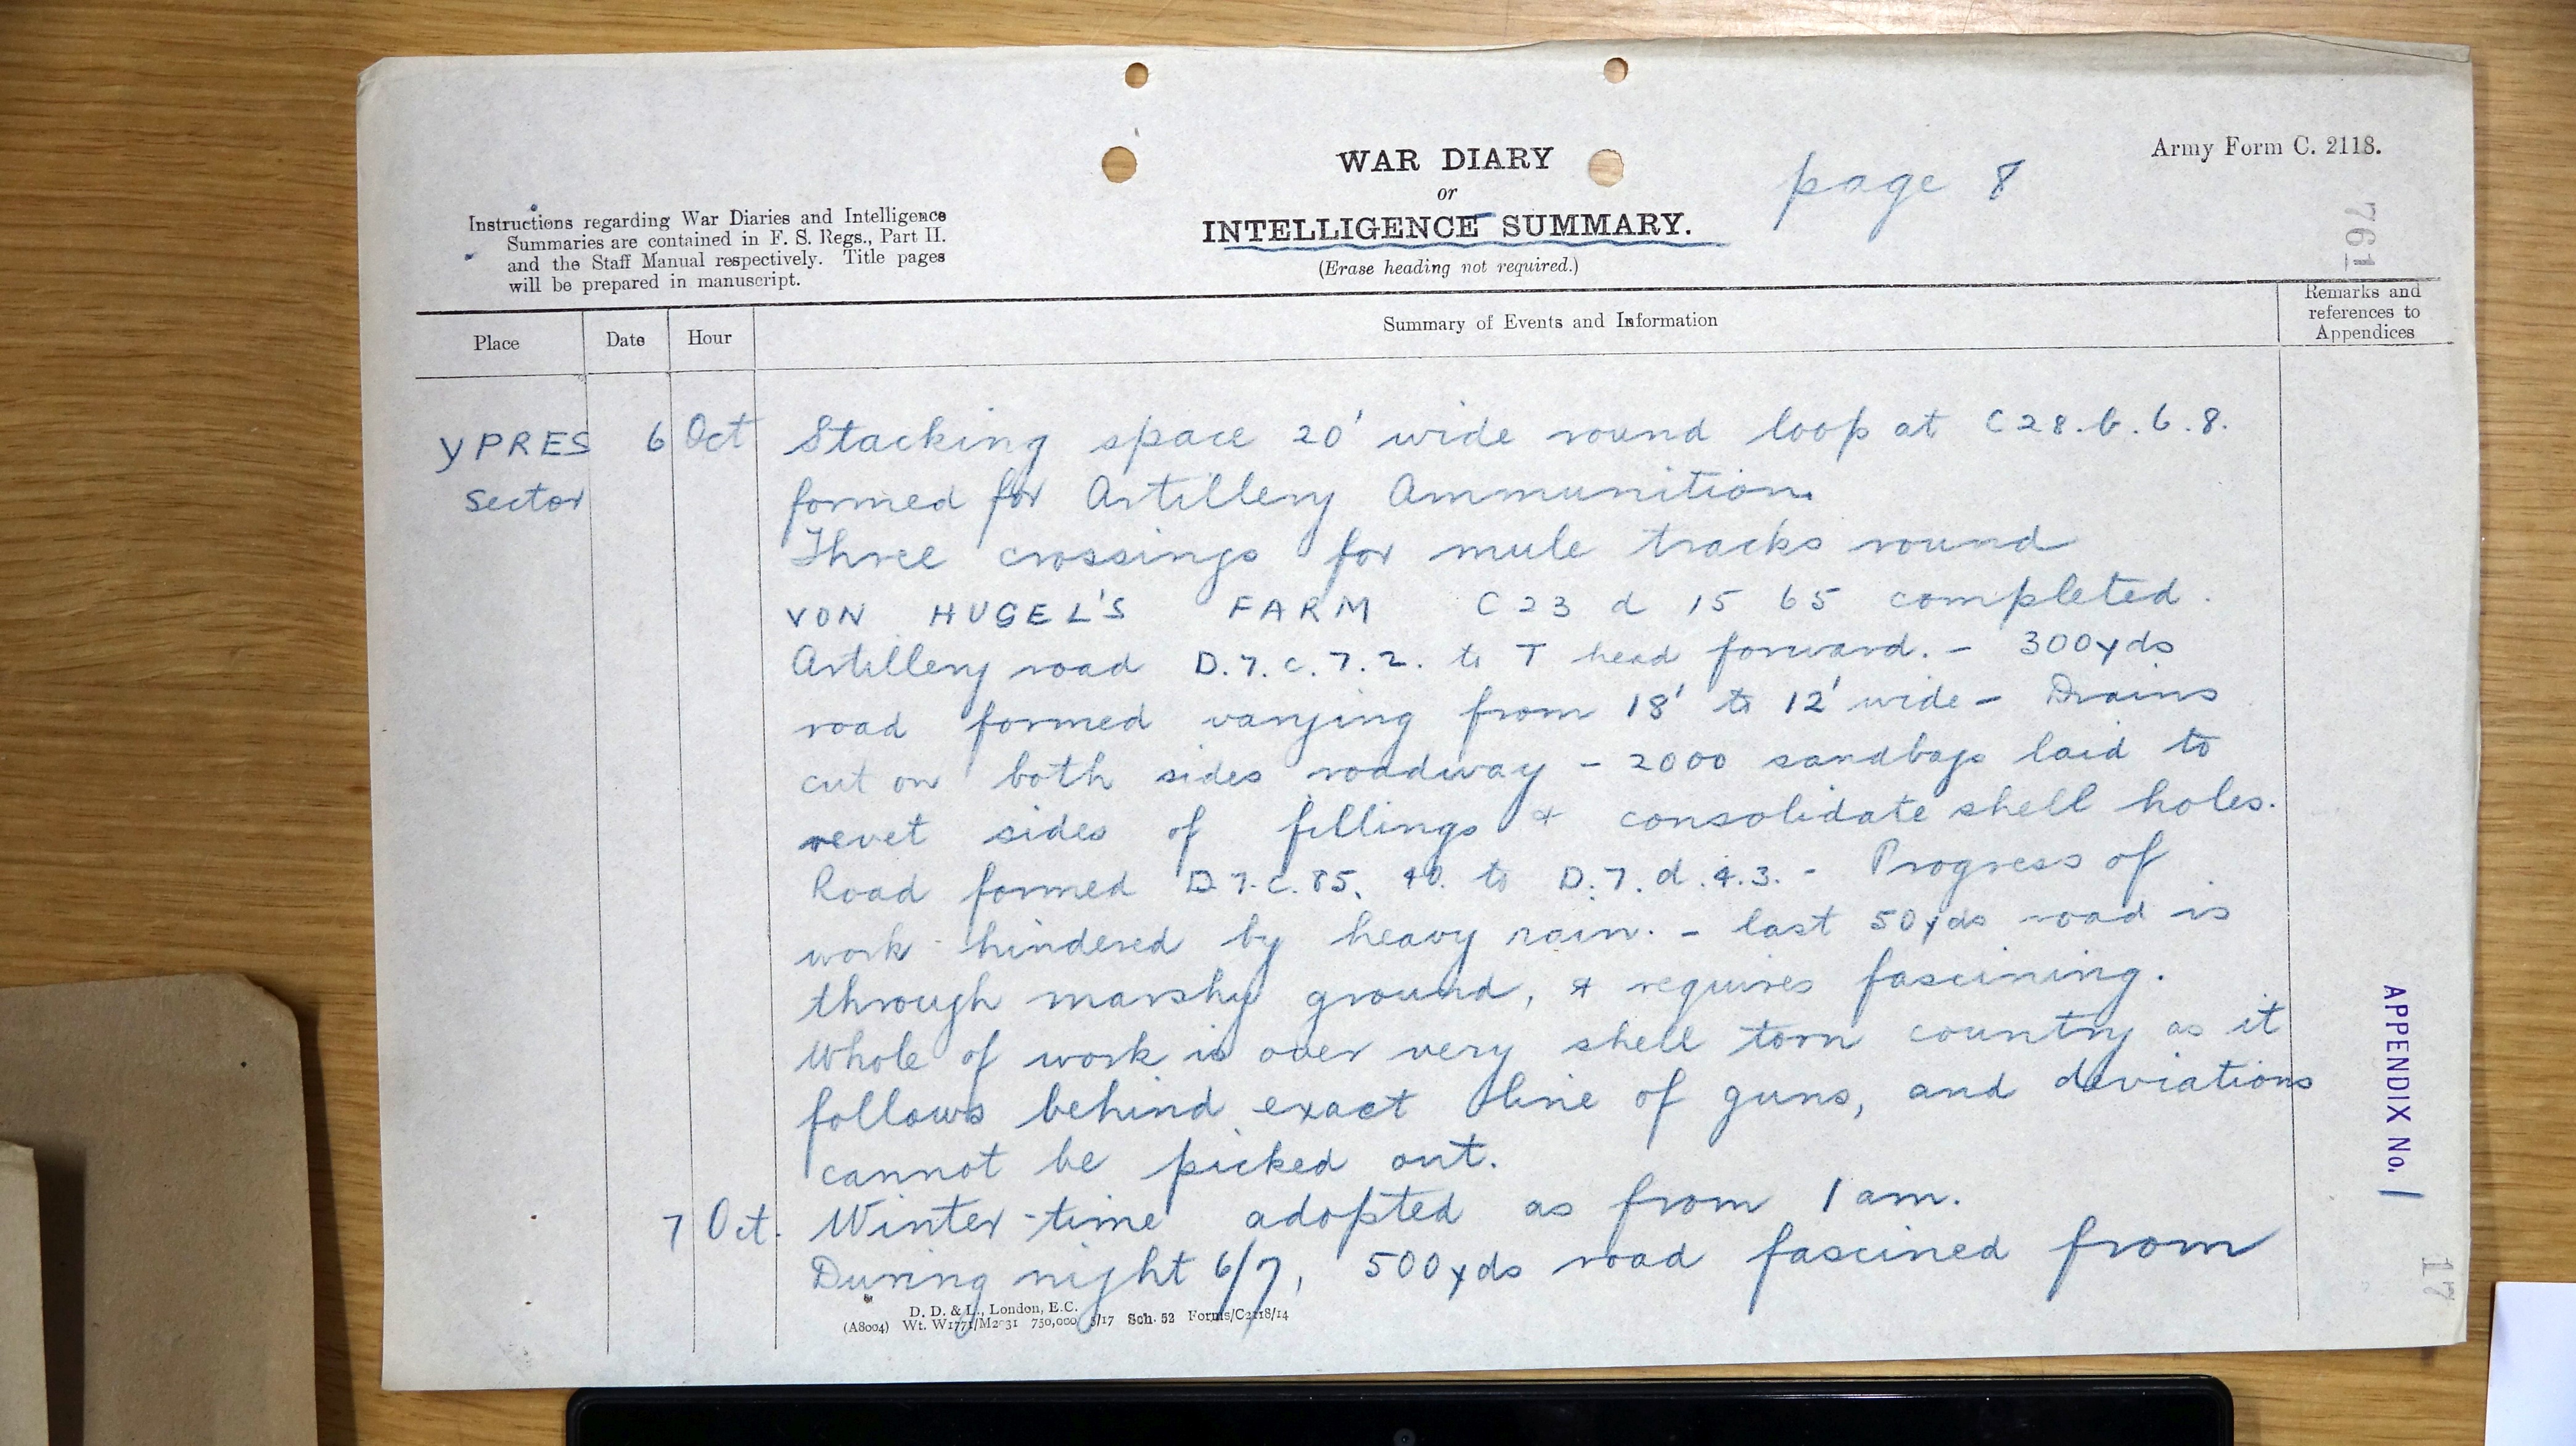 WAR DIARY
or
INTELLIGENCE SUMMARY.
(Erase heading not required.)
page 8
Army Form C. 2118.
761
Instructions regarding War Diaries and Intelligence
Summaries are contained in F. S. Regs., Part II.
and the Staff Manual respectively. Title pages
will be prepared in manuscript.
Place Date Hour Summary of Events and Information Remarks and references to Appendices
YPRES 6 Oct Stacking space 20' wide round loop at C28.b.6.8.
Sector formed for Artillery Ammunition.
Three crossings for mule tracks round
VON HUGEL'S FARM C 23 d 15 65 completed.
Artillery road D.7.c.7.2. to T head forward. - 300yds
road formed varying from 18' to 12' wide - Drains
cut on both sides roadway - 2000 sandbags laid to
revet sides of fillings & consolidate shell holes.
Road formed D.7.c.85.40. to D.7.d.4.3. - Progress of
work hindered by heavy rain. - last 50yds road is
through marshy ground, & requires fascining.
Whole of work is over very shell torn country as it
follows behind exact line of guns, and deviations
cannot be picked out.
7 Oct. Winter-time adopted as from 1 am.
During night 6/7, 500yds road fascined from
D. D. & L., London, E.C.
(A8004) Wt. W1771/M2031 750,000 5/17 Sch. 52 Forms/C2118/14
APPENDIX No. 1
17